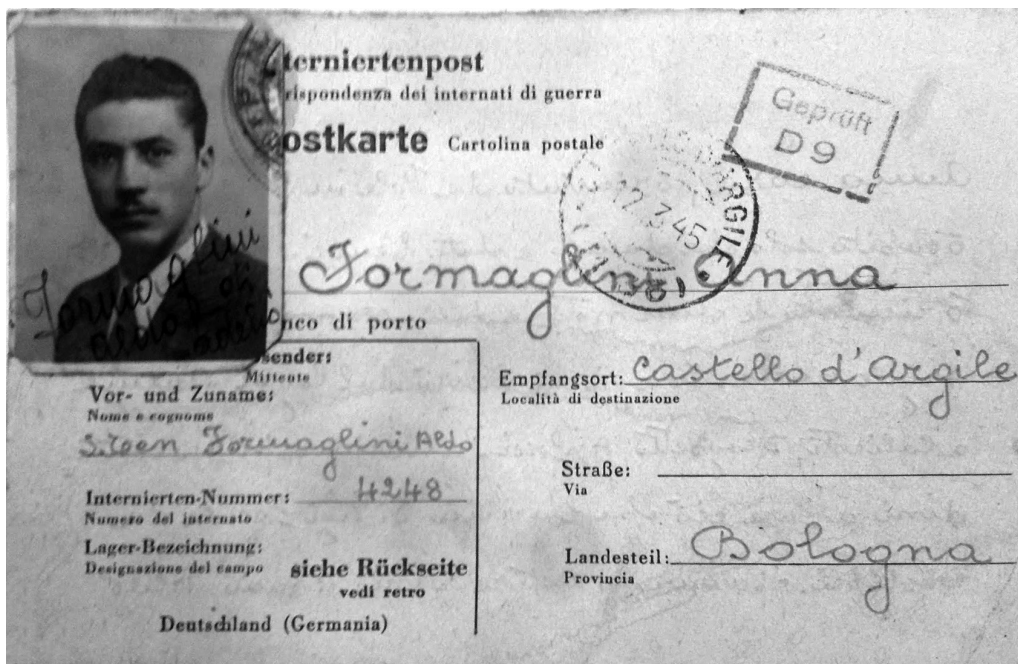 terniertenpost
rispondenza dei internati di guerra
ostkarte Cartolina postale
Geprüft
D9
D'ARGILE
12.3.45
Formaglini Anna
Formaglini
nco di porto
sender:
Mittente
Vor- und Zuname:
Nome e cognome
S.Ten. Formaglini Aldo
Internierten-Nummer: 4248
Numero del internato
Lager-Bezeichnung:
Designazione del campo
siehe Rückseite
vedi retro
Deutschland (Germania)
Empfangsort: Castello d'Argile
Località di destinazione
Straße:
Via
Landesteil: Bologna
Provincia